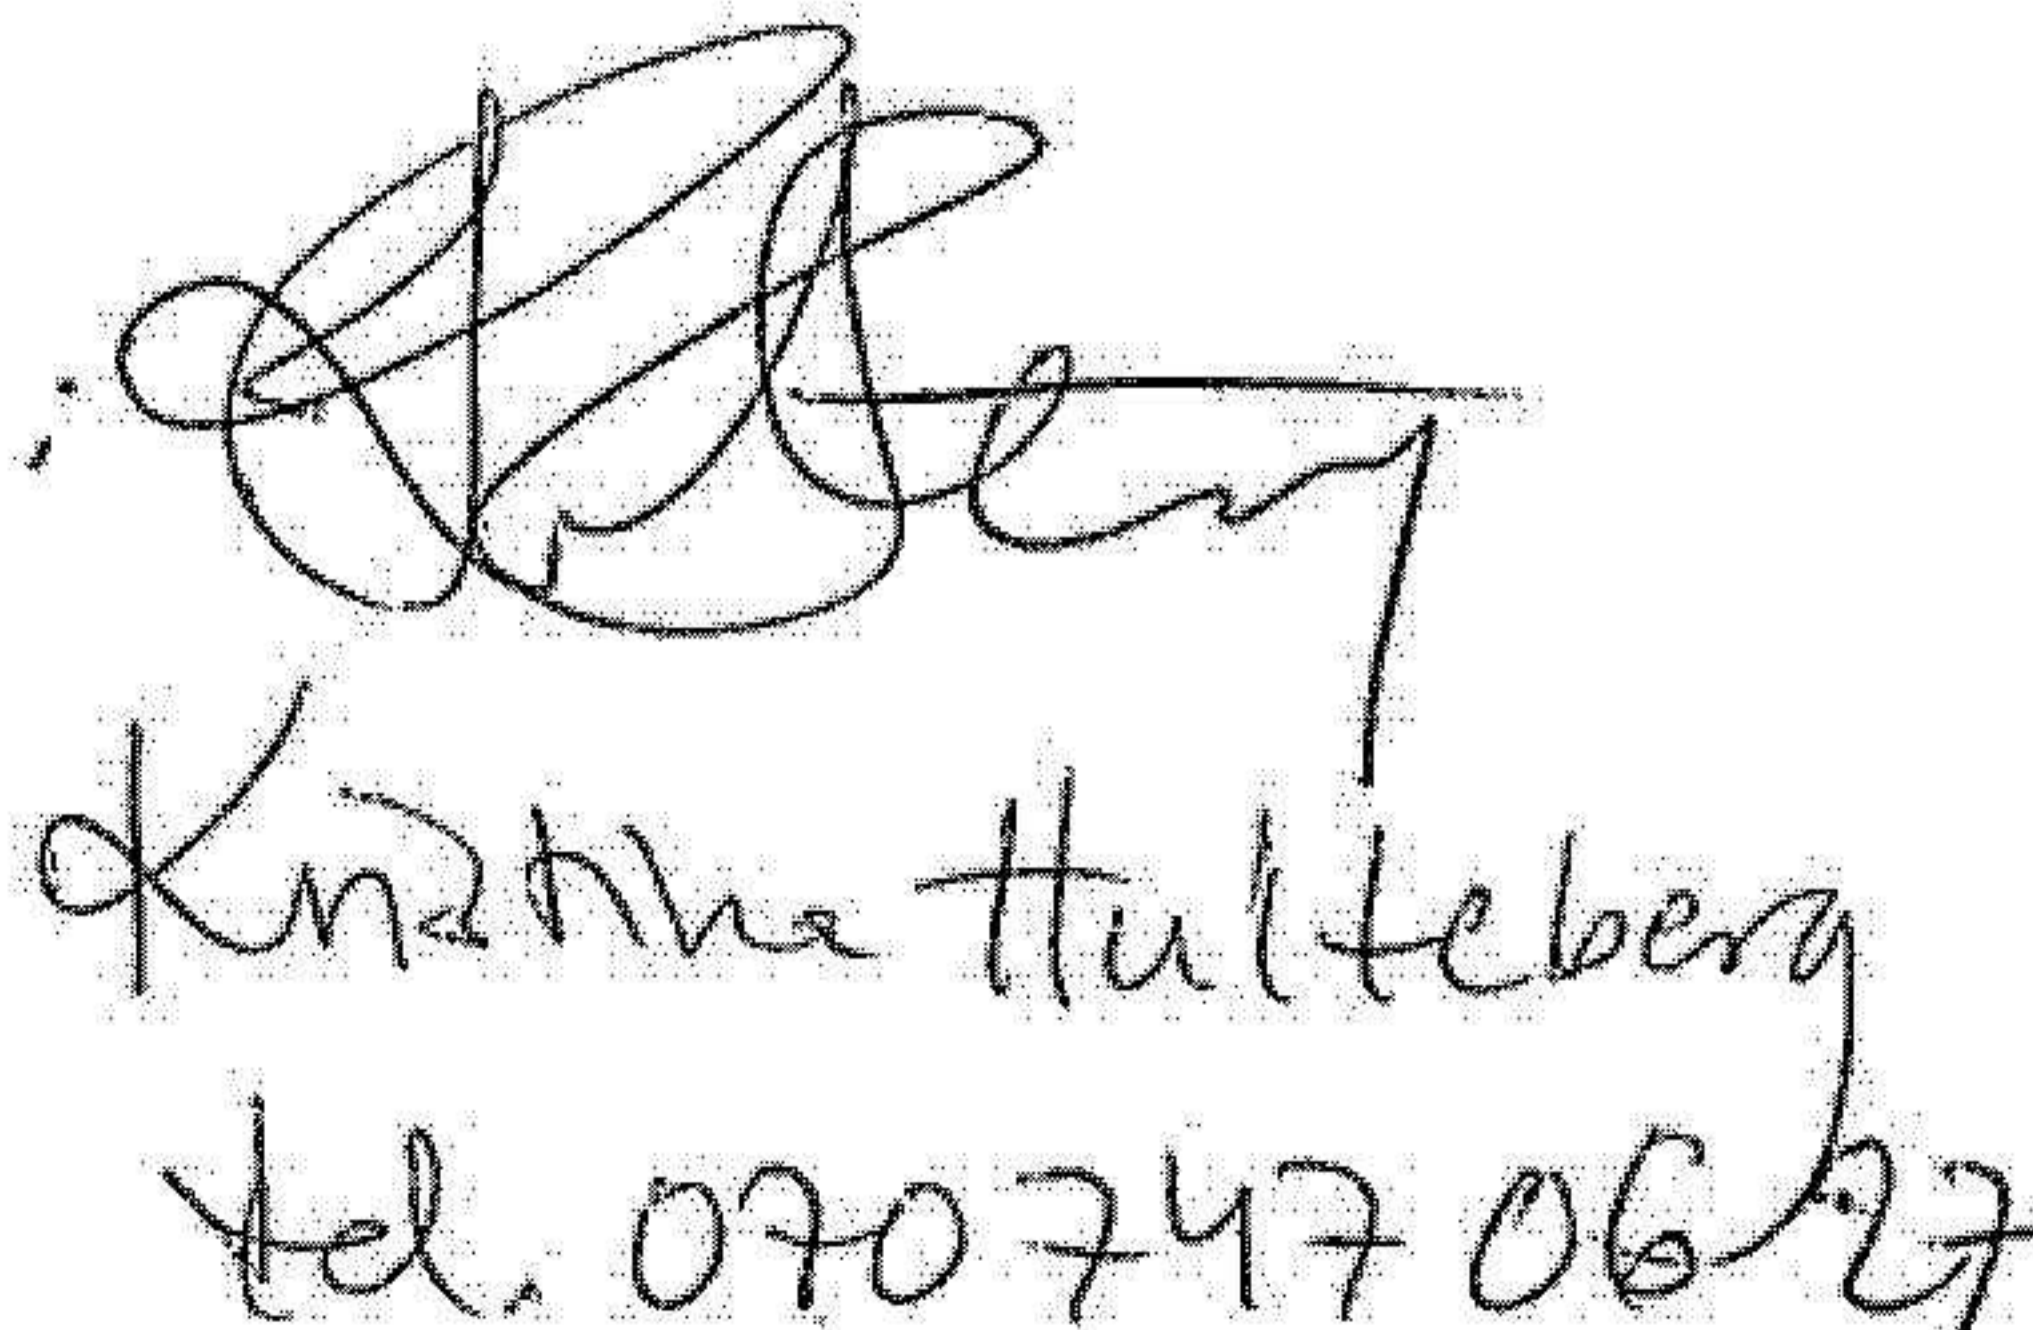 Kristina Hulteberg
tel. 070 747 06 27